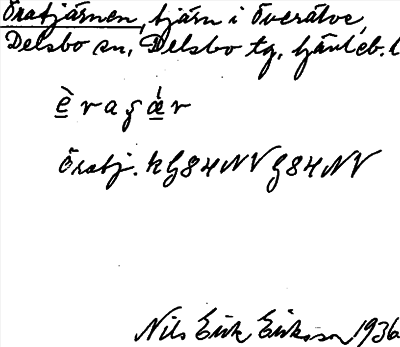 Öratjärnen, tjärn i Överälve,
Delsbo sn, Delsbo tg, Gävleb. l
Öratj. k G84NV G84NV
Nils Erik Eriksson 1936